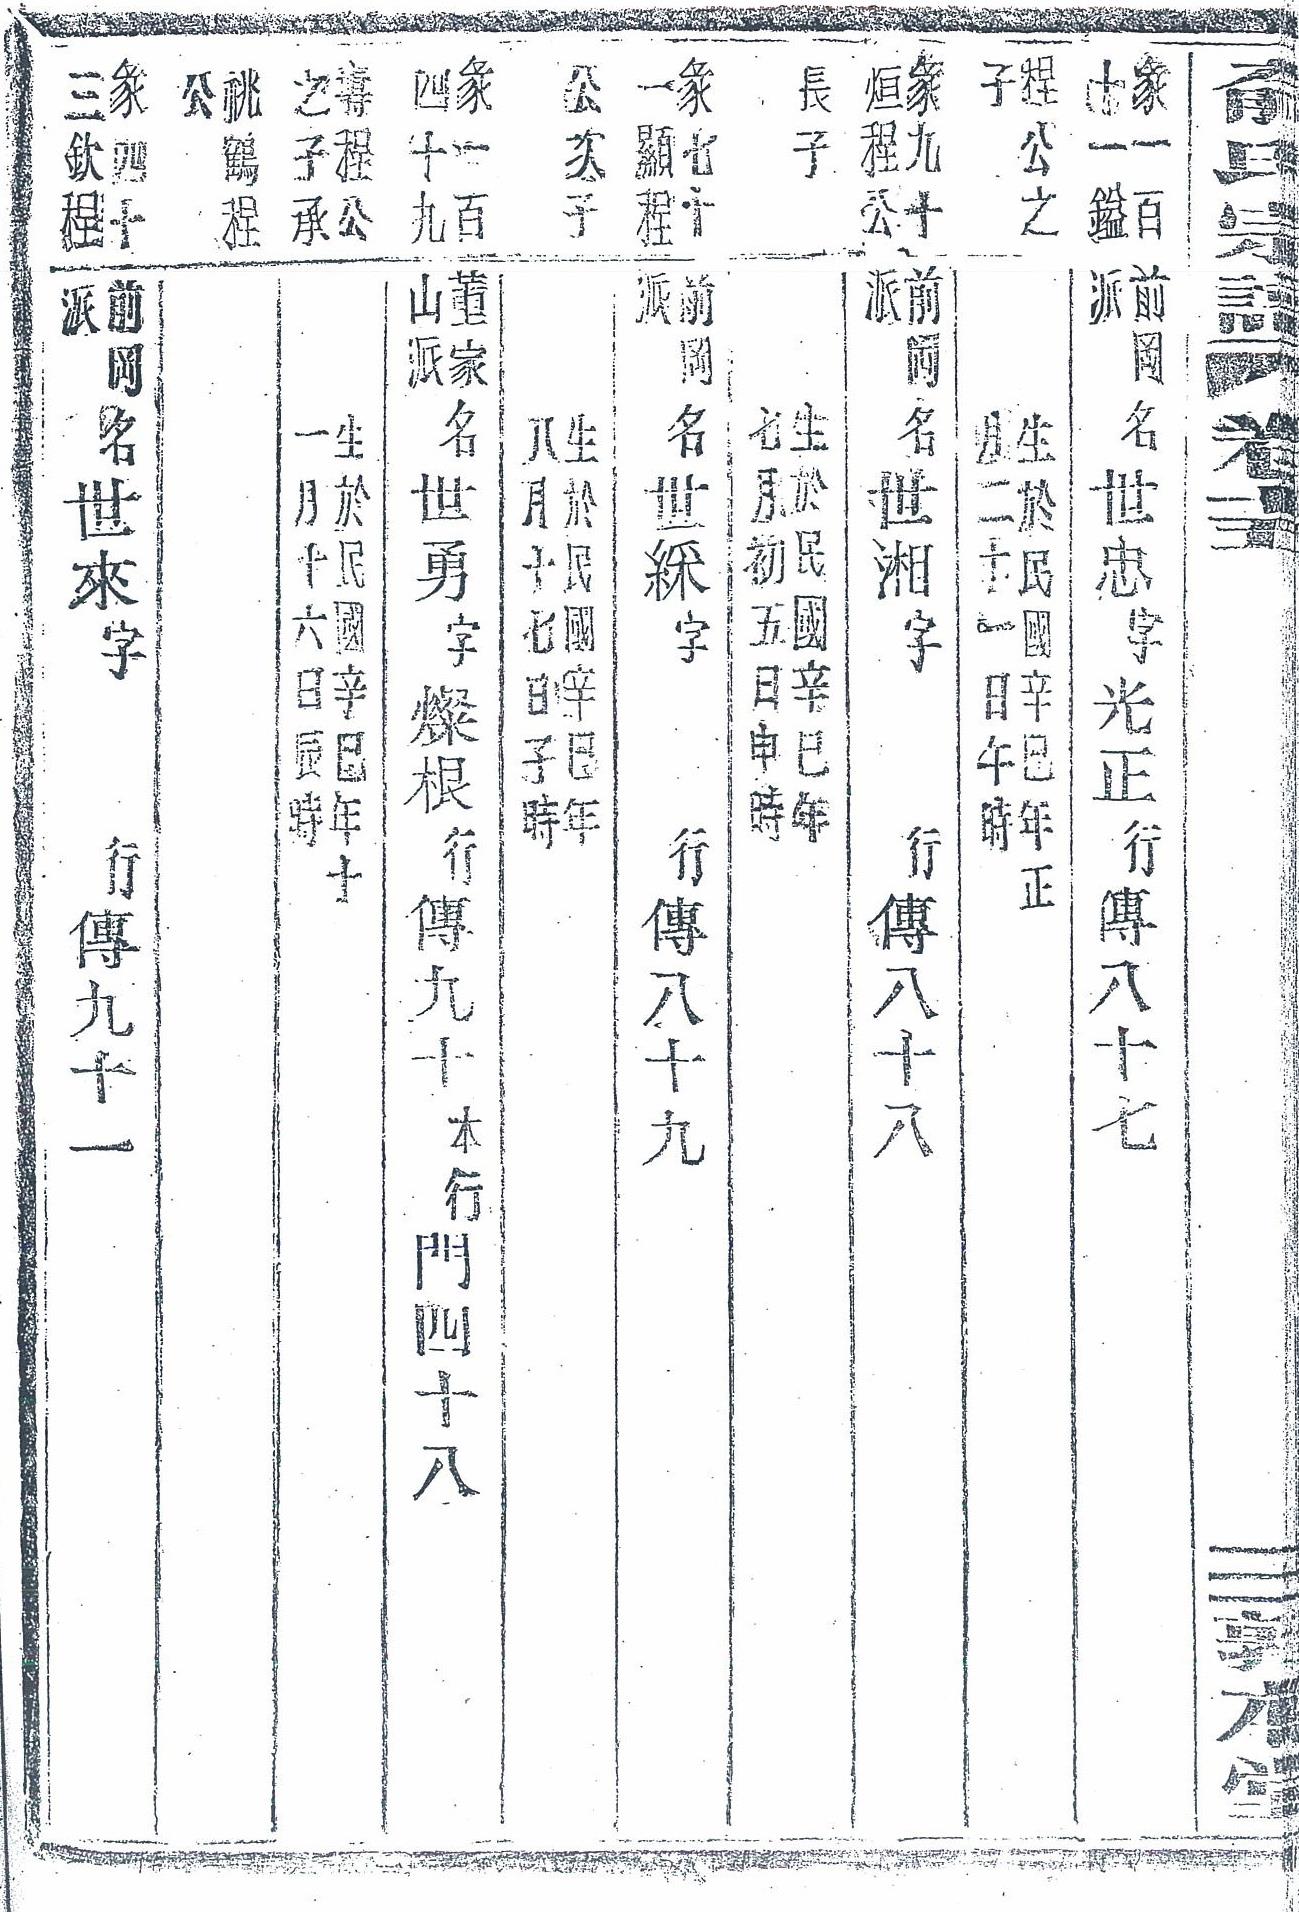 卷三
三
象一百
十一鎰
前岡
派
名世忠字光正行傳八十七
程公之
子
生於民國辛巳年正
月二十一日午時
象九十
烜程公
前岡
派
名世湘字 行傳八十八
長子
生於民國辛巳年
七月初五日申時
象七十
一顯程
前岡
派
名世綵字 行傳八十九
公次子
生於民國辛巳年
八月十七日子時
象一百
四十九
董家
山派
名世勇字燦根行傳九十本行門四十八
壽程公
之子承
生於民國辛巳年十
一月十六日辰時
祧鶴程
公
象四十
三欽程
前岡
派
名世來字 行傳九十一